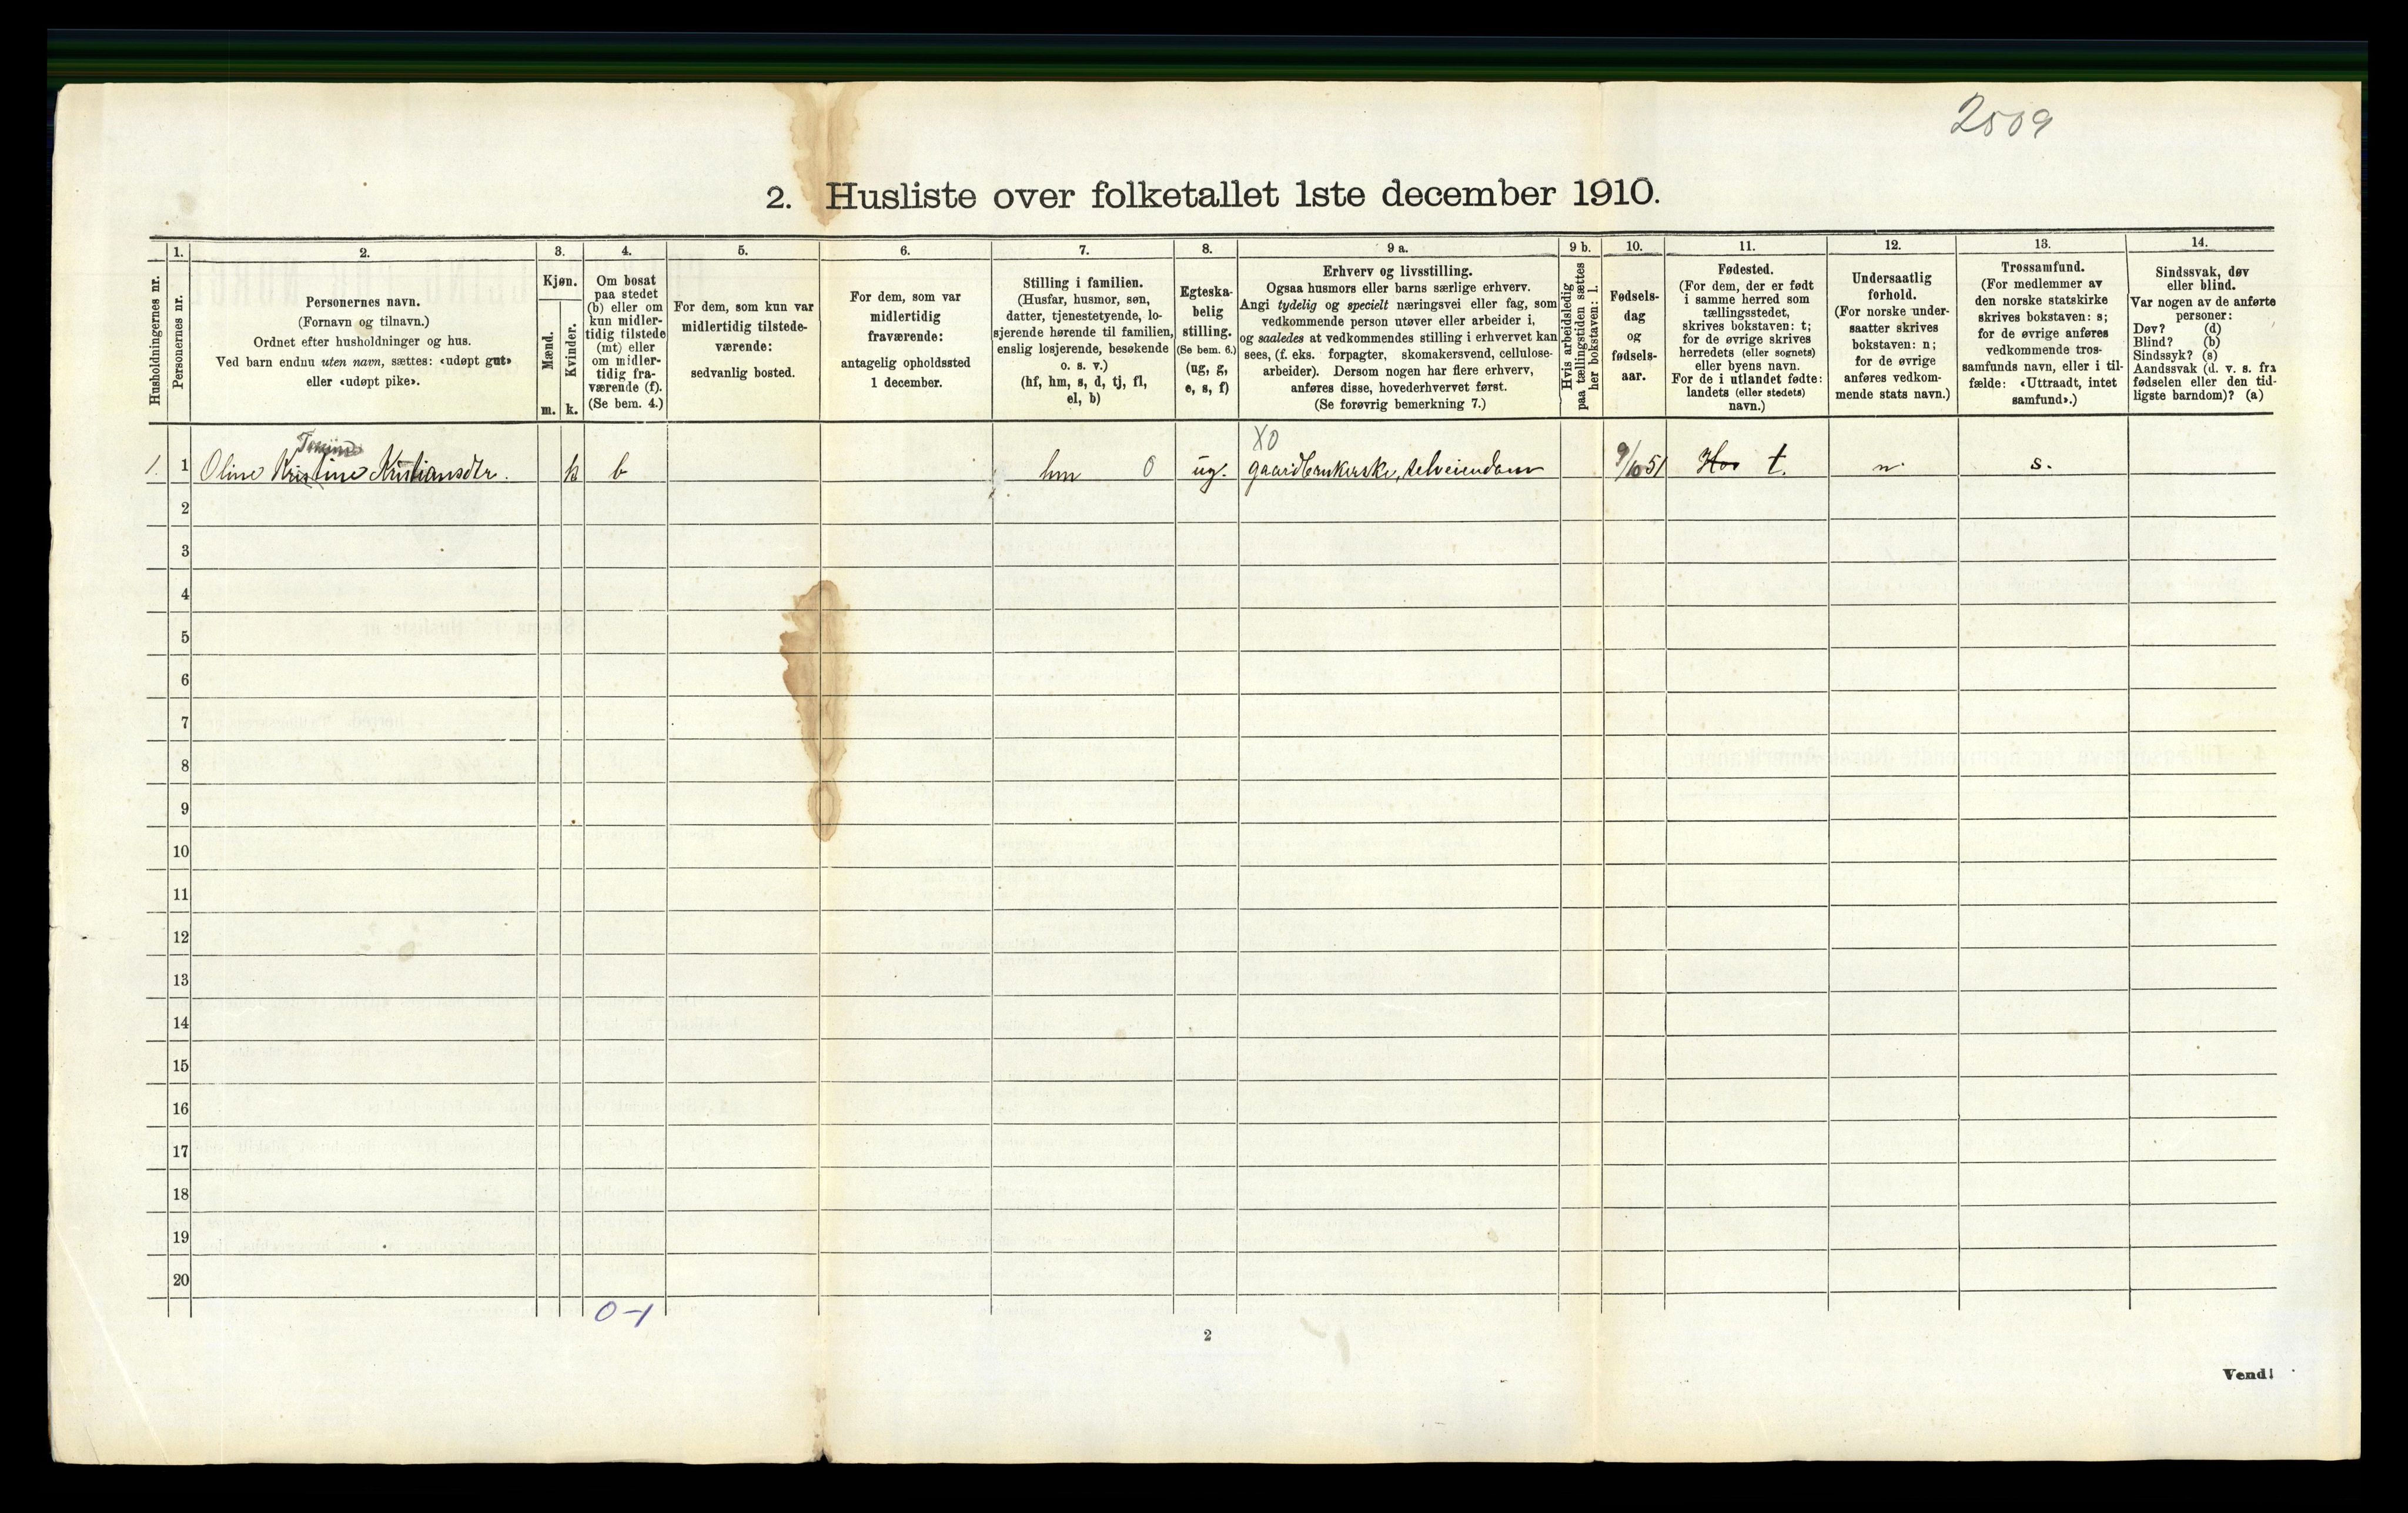 2509
2. Husliste over folketallet 1ste december 1910.
Husholdningernes nr.
1.
Personernes nr.
2.
Personernes navn.
(Fornavn og tilnavn.)
Ordnet efter husholdninger og hus.
Ved barn endnu uten navn, sættes: «udøpt gut»
eller «udøpt pike».
3.
Kjøn.
Mænd.
Kvinder.
m. k.
4.
Om bosat
paa stedet
(b) eller om
kun midler-
tidig tilstede
(mt) eller
om midler-
tidig fra-
værende (f).
(Se bem. 4.)
5.
For dem, som kun var
midlertidig tilstede-
værende:
sedvanlig bosted.
6.
For dem, som var
midlertidig
fraværende:
antagelig opholdssted
1 december.
7.
Stilling i familien.
(Husfar, husmor, søn,
datter, tjenestetyende, lo-
sjerende hørende til familien,
enslig losjerende, besøkende
o. s. v.)
(hf, hm, s, d, tj, fl,
el, b)
8.
Egteska-
belig
stilling.
(Se bem. 6.)
(ug, g,
e, s, f)
9 a.
Erhverv og livsstilling.
Ogsaa husmors eller barns særlige erhverv.
Angi tydelig og specielt næringsvei eller fag, som
vedkommende person utøver eller arbeider i,
og saaledes at vedkommendes stilling i erhvervet kan
sees, (f. eks. forpagter, skomakersvend, cellulose-
arbeider). Dersom nogen har flere erhverv,
anføres disse, hovederhvervet først.
(Se forøvrig bemerkning 7.)
9 b.
Hvis arbeidsledig
paa tællingstiden sættes
her bokstaven: l.
10.
Fødsels-
dag
og
fødsels-
aar.
11.
Fødested.
(For dem, der er født
i samme herred som
tællingsstedet,
skrives bokstaven: t;
for de øvrige skrives
herredets (eller sognets)
eller byens navn.
For de i utlandet fødte:
landets (eller stedets)
navn.)
12.
Undersaatlig
forhold.
(For norske under-
saatter skrives
bokstaven: n;
for de øvrige
anføres vedkom-
mende stats navn.)
13.
Trossamfund.
(For medlemmer av
den norske statskirke
skrives bokstaven: s;
for de øvrige anføres
vedkommende tros-
samfunds navn, eller i til-
fælde: «Uttraadt, intet
samfund».)
14.
Sindssvak, døv
eller blind.
Var nogen av de anførte
personer:
Døv? (d)
Blind? (b)
Sindssyk? (s)
Aandssvak (d. v. s. fra
fødselen eller den tid-
ligste barndom)? (a)
XO
1. 1 Oline Kristine Kristiansdtr. k b hm 0 ug. gaardbrukerske, selveiendom 9/10 51 t. n. s.
2
3
4
5
6
7
8
9
10
11
12
13
14
15
16
17
18
19
20
0-1
2
Vend!